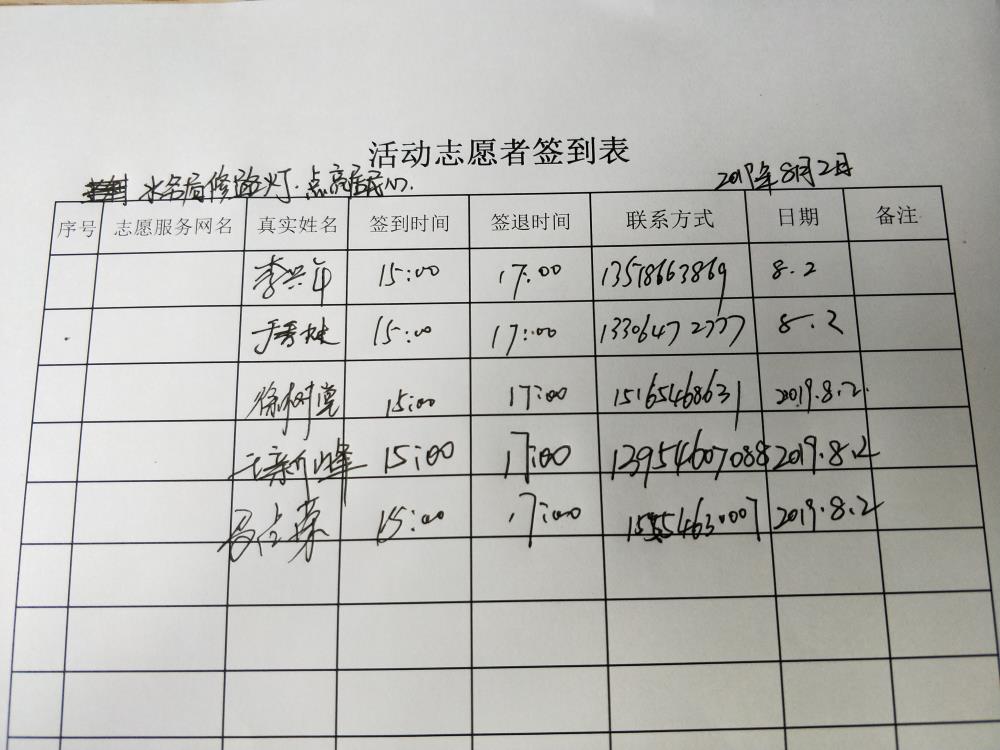 活动志愿者签到表
水务局修路灯.点亮居民心. 2019年8月2日
序号 志愿服务网名 真实姓名 签到时间 签退时间 联系方式 日期 备注
李兴年 15:00 17:00 13518663869 8.2
15:00 17:00 13306472777 8.2
徐树堂 15:00 17:00 15165468631 2019.8.2.
王新峰 15:00 17:00 13954607088 2019.8.2
15:00 17:00 2019.8.2